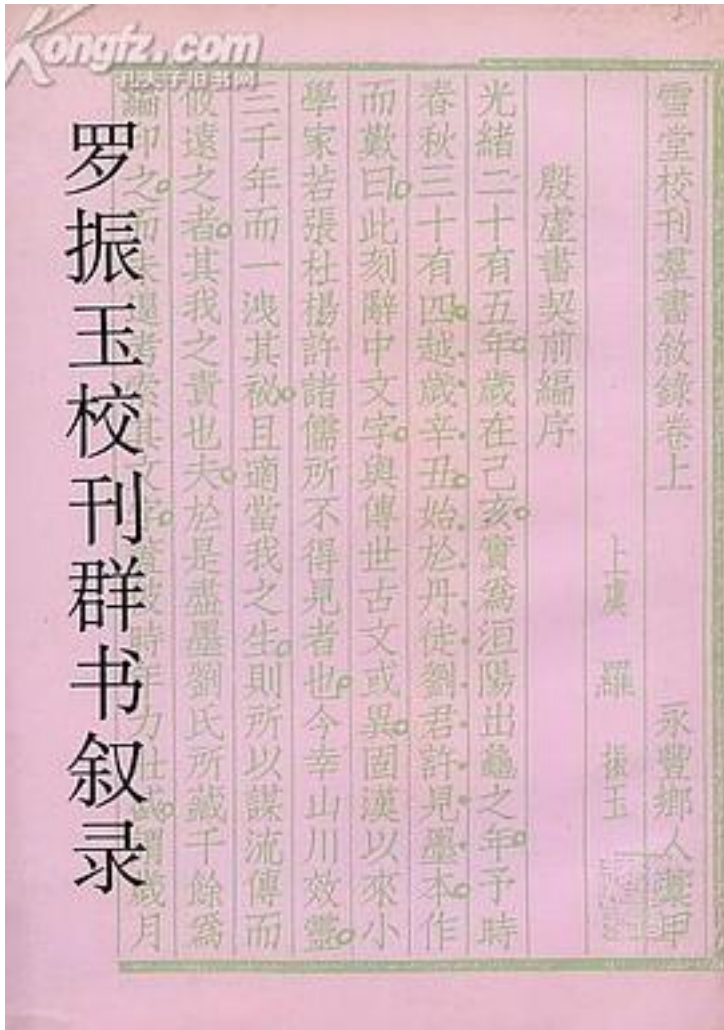 Kongfz.com
孔夫子旧书网
罗振玉校刊群书叙录
雪堂校刊羣書敘錄卷上 永豐鄉人稾甲
上虞 羅振玉
殷虛書契前編序
光緒二十有五年歲在己亥實爲洹陽出龜之年予時
春秋三十有四越歲辛丑始於丹徒劉君許見墨本作
而歎曰此刻辭中文字與傳世古文或異固漢以來小
學家若張杜楊許諸儒所不得見者也今幸山川效靈
三千年而一洩其祕且適當我之生則所以謀流傳而
攸遠之者其我之責也夫於是盡墨劉氏所藏千餘爲
編印之而未遑考索其文字
時年力壯盛謂歲月